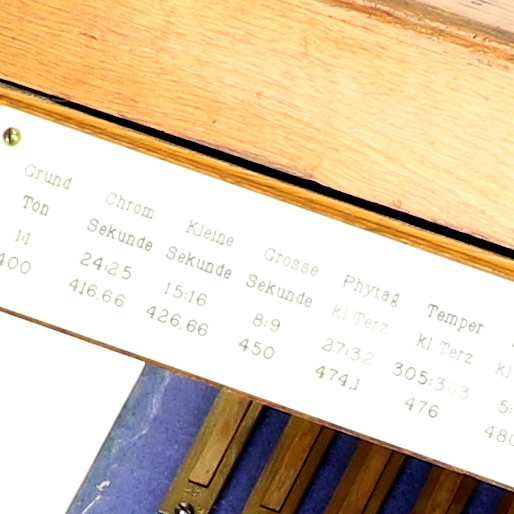 Grund Chrom Kleine Grosse Phytag Temper
Ton Sekunde Sekunde Sekunde kl Terz kl Terz
1:1 24:25 15:16 8:9 27:32 305:363
400 416,66 426,66 450 474,1 476 480